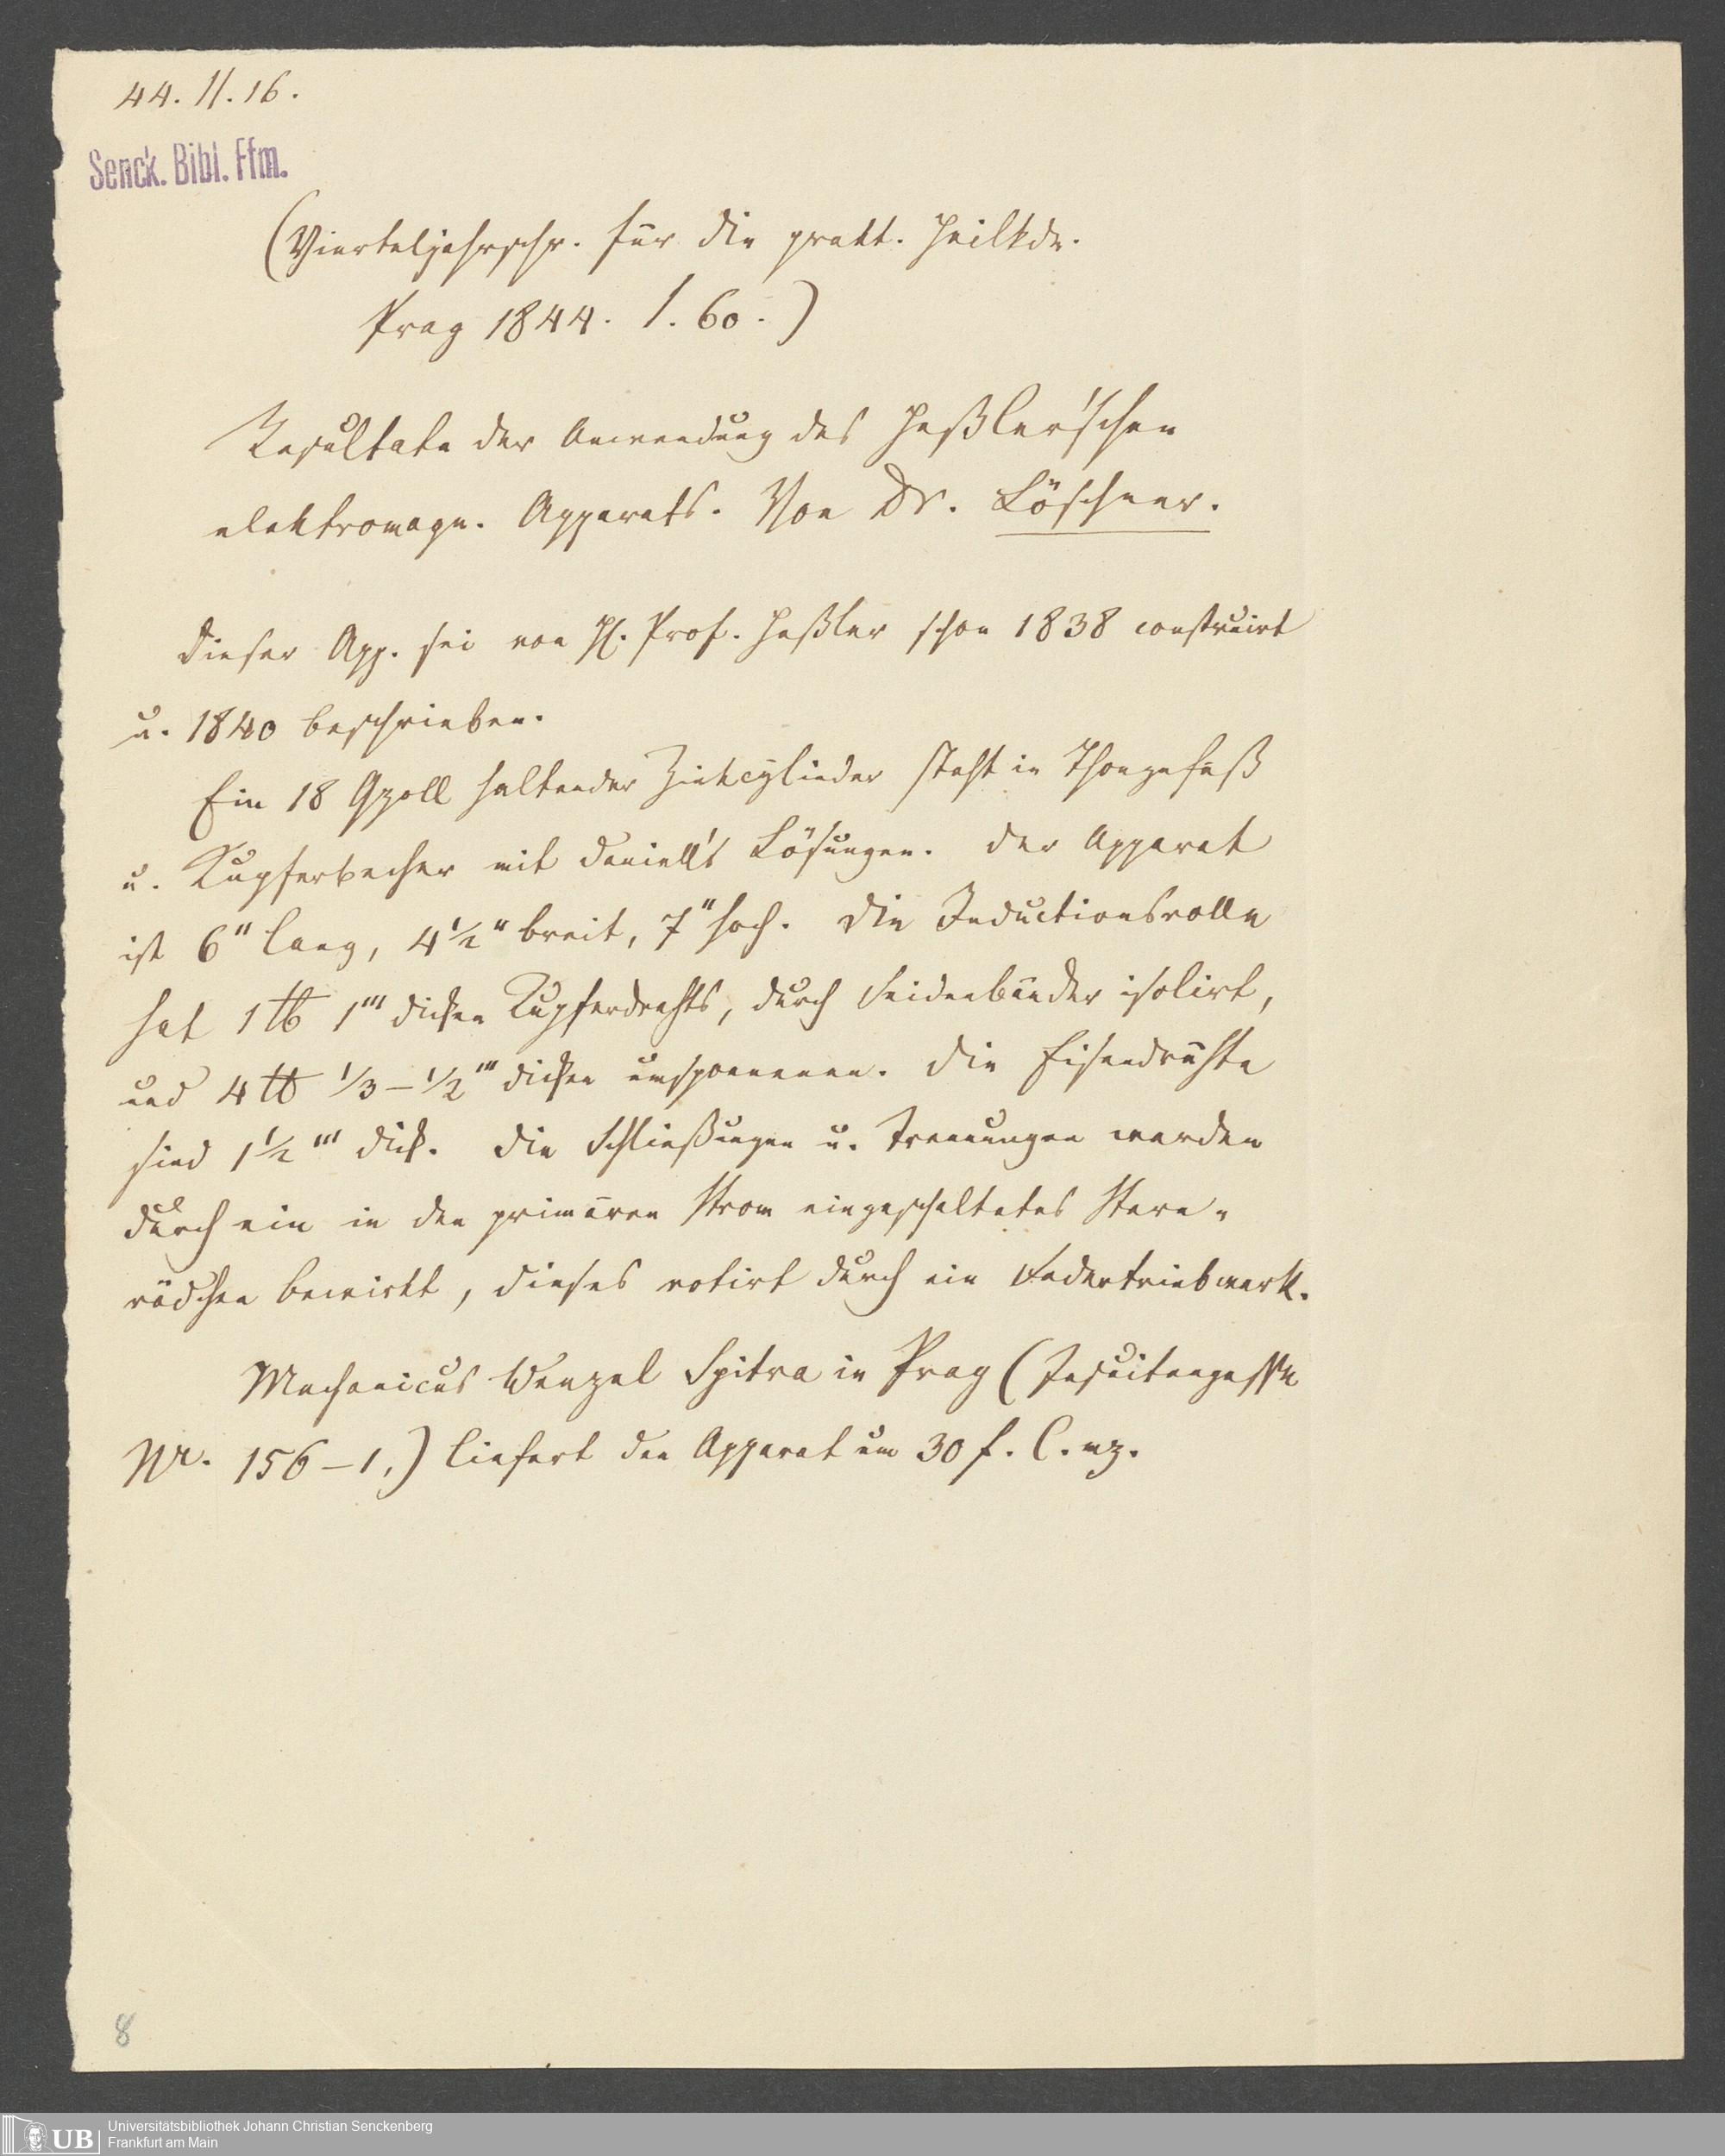 44. 11. 16.
Senck. Bibl. Ffm.
(Vierteljahrschr. für die prakt. Heilkde.
Prag 1844. 1. 60.)
Resultate der Anwendung des Heßler'schen
elektromagn. Apparats. Von Dr. Löschner.
Dieser App. sei von H. Prof. Heßler schon 1838 construirt
u. 1840 beschrieben.
Ein 18 Qzoll haltender Zinkcylinder steht in Thongefäß
u. Kupferbecher mit Daniell's Lösungen. Der Apparat
ist 6" lang, 4 1/2" breit, 7" hoch. Die Inductionsrolle
hat 1 ℔ 1''' dicken Kupferdrahts, durch Seidenbänder isolirt,
und 4 ℔ 1/3–1/2''' dicken umsponnenen. Die Eisendrähte
sind 1 1/2''' dick. Die Schließungen u. Trennungen werden
durch ein in den primären Strom eingeschaltetes Stern-
rädchen bewirkt, dieses rotirt durch ein Federtriebwerk.
Mechanicus Wenzel Spitra in Prag (Jesuitengasse
Nr. 156–1,) liefert den Apparat um 30 f. C. mz.
8
UB Universitätsbibliothek Johann Christian Senckenberg
Frankfurt am Main